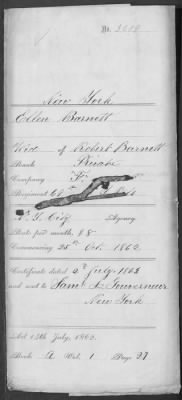 No. 3689
New York
Ellen Barnett
Wid of Robert Barnett
Rank Private
Company F.
Regiment
N. Y. City Agency
Rate per month, $8
Commencing 25th Oct. 1862
Certificate dated 2d July 1863
and sent to Sam'l L. Gouverneur
New York
Act 14th July, 1862.
Book A Vol. 1 Page 27